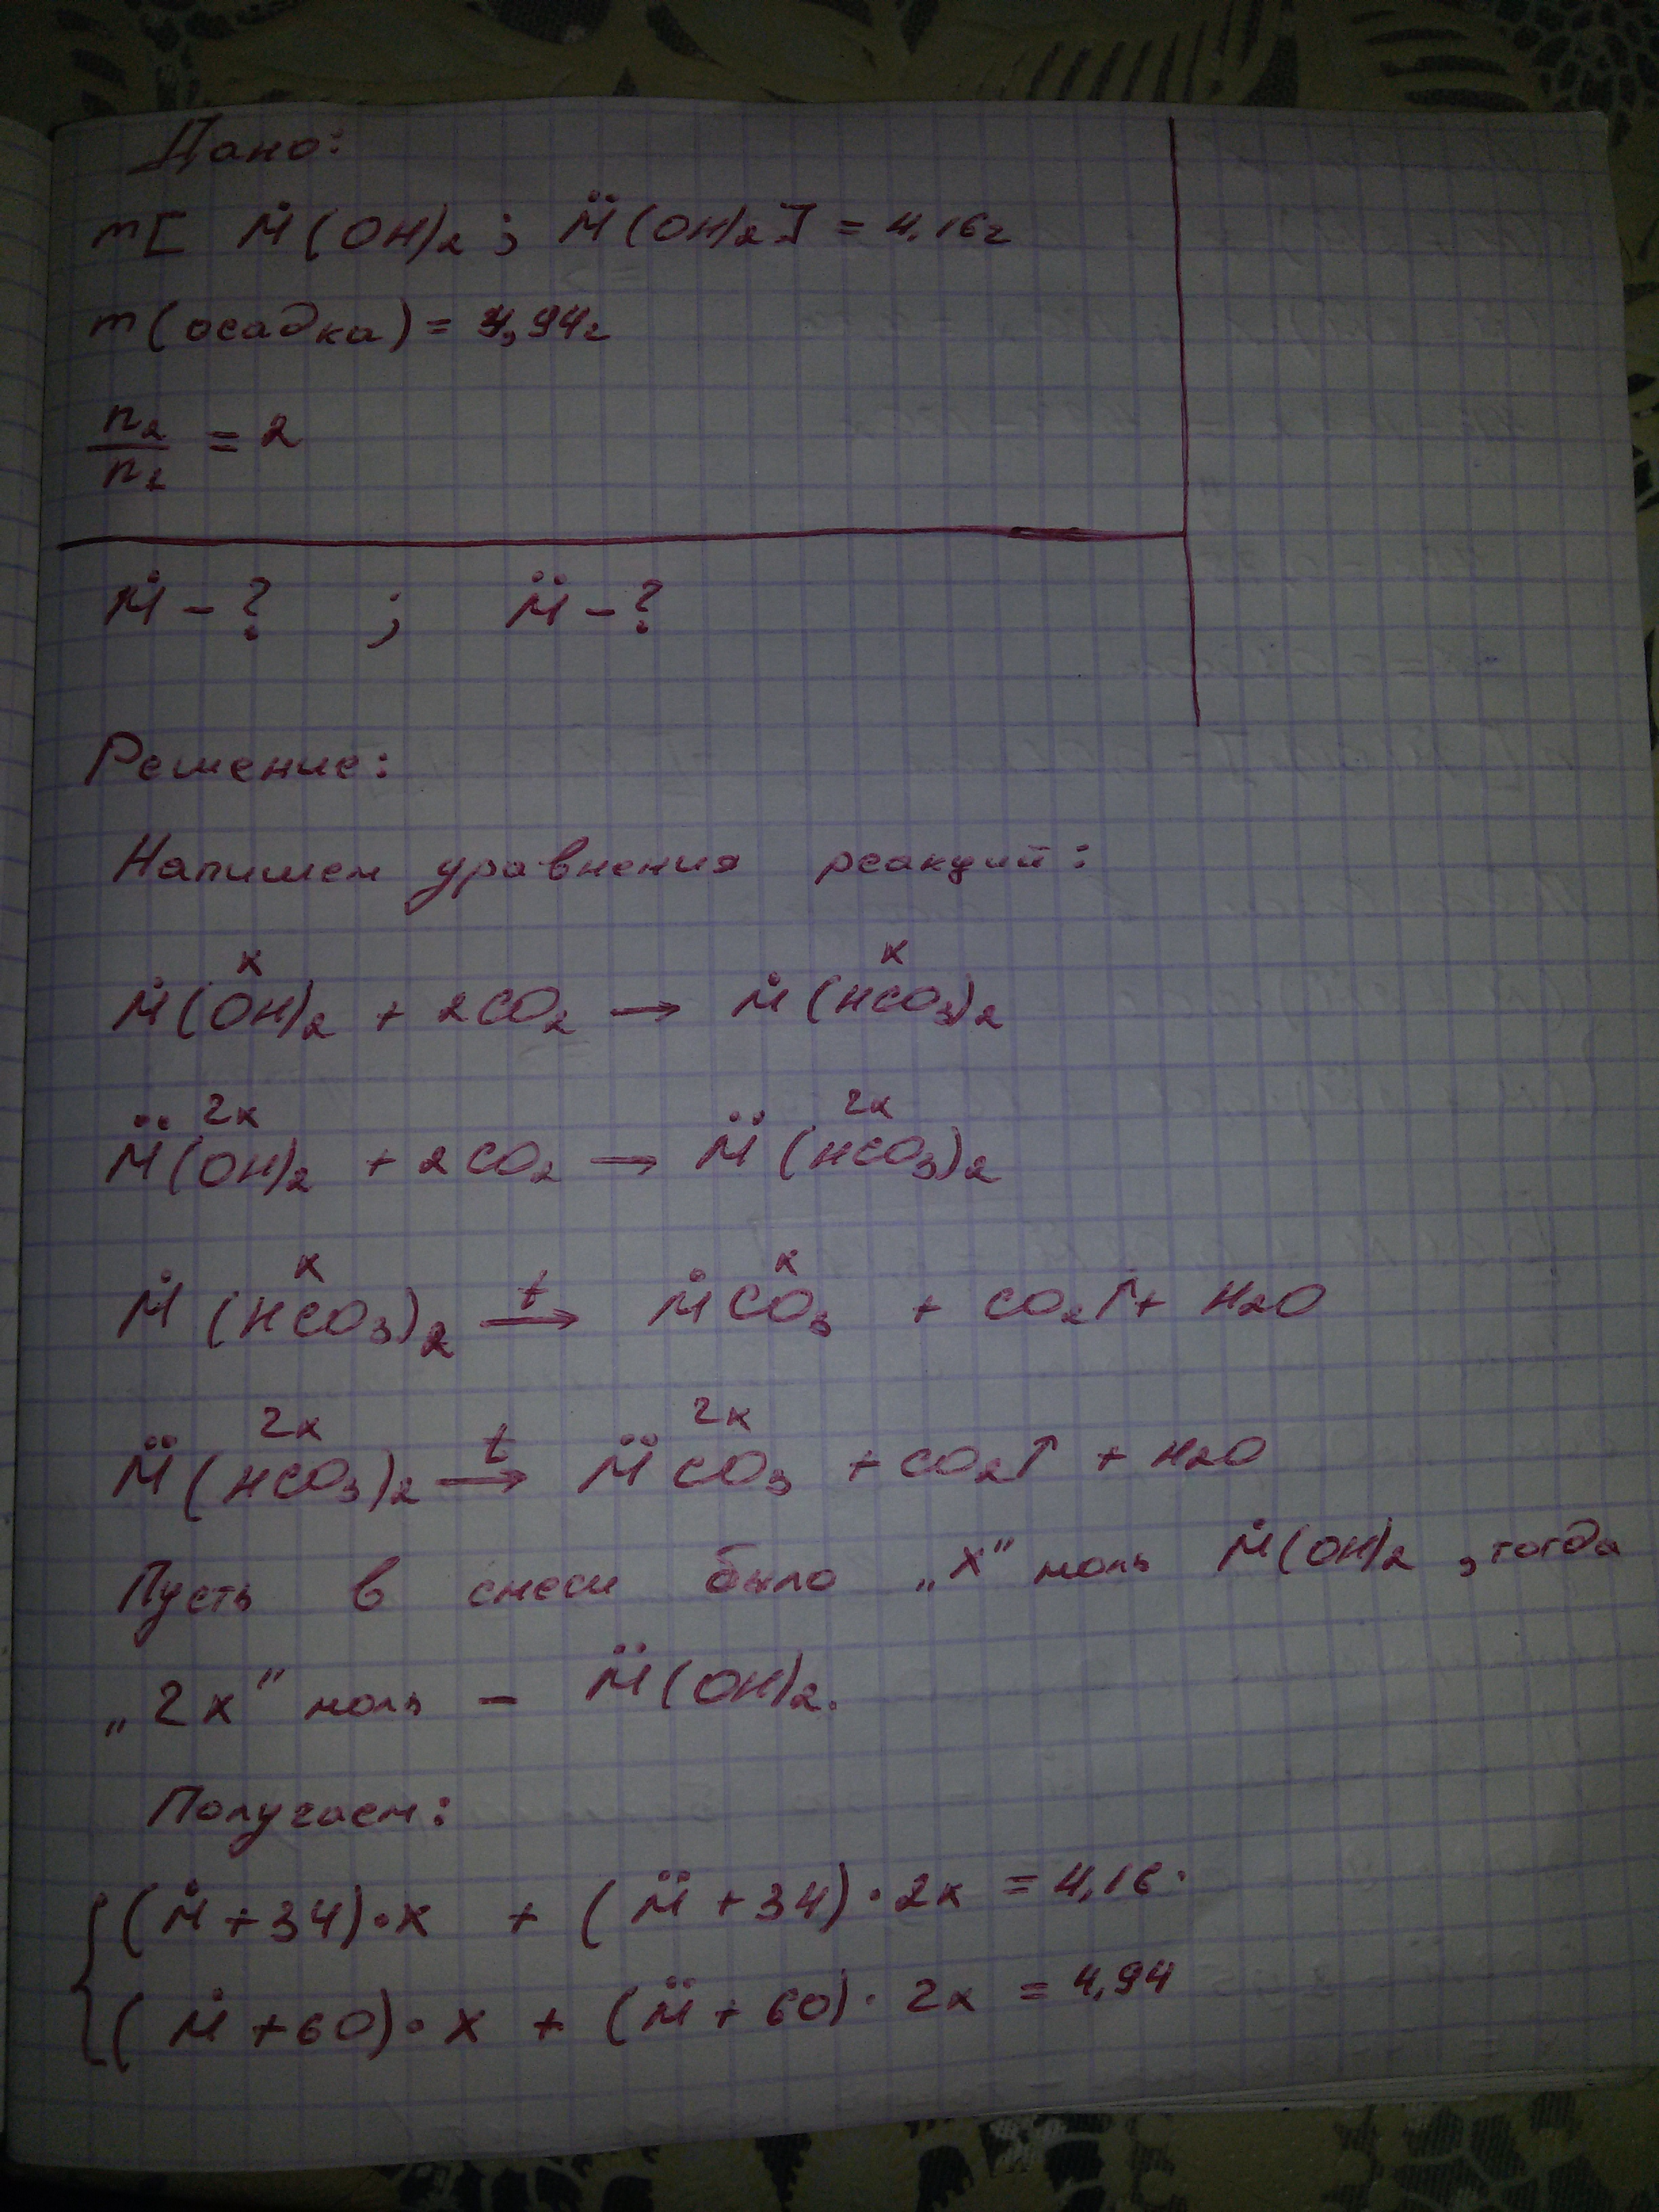 Дано:
m[ Ṁ(OH)₂ ; M̈(OH)₂] = 4,16г
m(осадка) = 4,94г
n₂/n₁ = 2
Ṁ - ? ; M̈ - ?
Решение:
Напишем уравнения реакций:
x x
Ṁ(OH)₂ + 2CO₂ → Ṁ(HCO₃)₂
2x 2x
M̈(OH)₂ + 2CO₂ → M̈(HCO₃)₂
x t x
Ṁ(HCO₃)₂ → ṀCO₃ + CO₂↑ + H₂O
2x t 2x
M̈(HCO₃)₂ → M̈CO₃ + CO₂↑ + H₂O
Пусть в смеси было „x" моль Ṁ(OH)₂, тогда
„2x" моль - M̈(OH)₂.
Получаем:
(Ṁ+34)·x + (M̈+34)·2x = 4,16
(Ṁ+60)·x + (M̈+60)·2x = 4,94